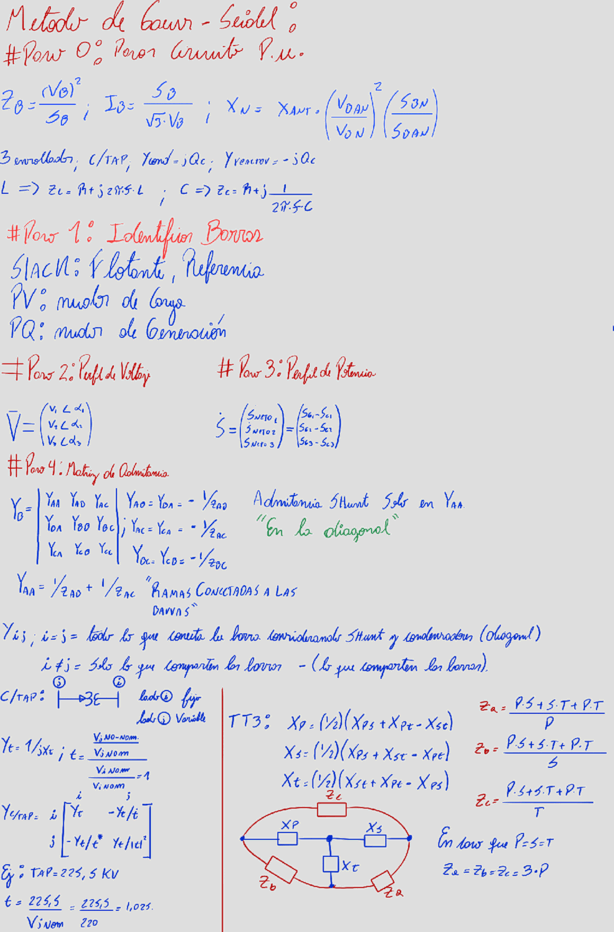 Metodo de Gauss-Seidel:
#Paso 0: Pasar Circuito P.u.
Z_B = (V_B)^2 / S_B ; I_B = S_B / √3·V_B ; X_N = X_ANT · (V_BAN / V_BN)^2 (S_BN / S_BAN)
3 enrollados, C/TAP, Ycond = jQc; Yreactor = -jQc
L => Zc = R + j2π·f·L ; C => Zc = R + j 1 / 2π·f·C
#Paso 1: Identifico Barras
Slack: Flotante, Referencia
PV: nudos de Carga
PQ: nudos de Generación
#Paso 2: Perfil de Voltaje
V̄ = (V1 ∠α1
V2 ∠α2
V3 ∠α3)
#Paso 3: Perfil de Potencia
Ṡ = (S_NETO1
S_NETO2
S_NETO3) = (SG1-SC1
SG2-SC2
SG3-SC3)
#Paso 4: Matriz de Admitancia
Y_B = | YAA YAB YAC |
| YBA YBB YBC | ;
| YCA YCB YCC |
YAB = YBA = -1/ZAB
YAC = YCA = -1/ZAC
YBC = YCB = -1/ZBC
Admitancia SHunt Solo en YAA
"En la diagonal"
YAA = 1/ZAB + 1/ZAC "RAMAS CONECTADAS A LAS
BARRAS"
Yij, i=j = todo lo que conecta la barra considerando SHunt y condensadores (diagonal)
i≠j = Solo lo que comparten las barras -(lo que comparten las barras).
C/TAP: i j lado i fijo
lado j Variable
Yt = 1/jXt ; t = (Vj NO-NOM / Vj NOM) / (Vi NOM / Vi NOM) = 1
i j
Y_C/TAP = i [ Yt -Yt/t
j -Yt/t* Yt/|t|² ]
Ej: TAP = 225,5 KV
t = 225,5 / Vj NOM = 225,5 / 220 = 1,025.
TT3: Xp = (1/2)(Xps + Xpt - Xst)
Xs = (1/2)(Xps + Xst - Xpt)
Xt = (1/2)(Xst + Xpt - Xps)
Zc
Xp Xs
Xt
Zb Za
Za = P·S+S·T+P·T / P
Zb = P·S+S·T+P·T / S
Zc = P·S+S·T+P·T / T
En caso que P=S=T
Za = Zb = Zc = 3·P